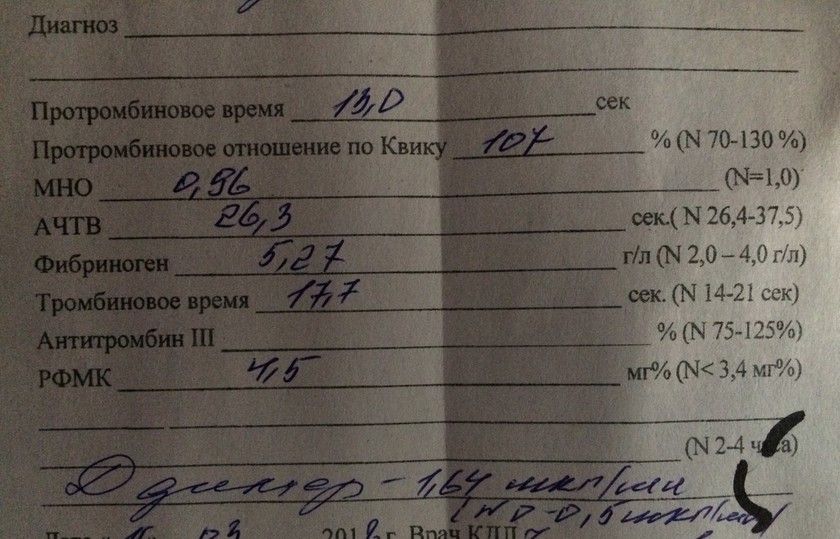 Диагноз
Протромбиновое время 13,0 сек
Протромбиновое отношение по Квику 107 % (N 70-130 %)
МНО 0,96 (N=1,0)
АЧТВ 26,3 сек.( N 26,4-37,5)
Фибриноген 5,27 г/л (N 2,0 – 4,0 г/л)
Тромбиновое время 17,7 сек. (N 14-21 сек)
Антитромбин III % (N 75-125%)
РФМК 4,5 мг% (N< 3,4 мг%)
(N 2-4 часа)
Д димер - 1,64 мкг/мл
(N 0-0,5 мкг/мл)
03 2018 г. Врач КДЛ